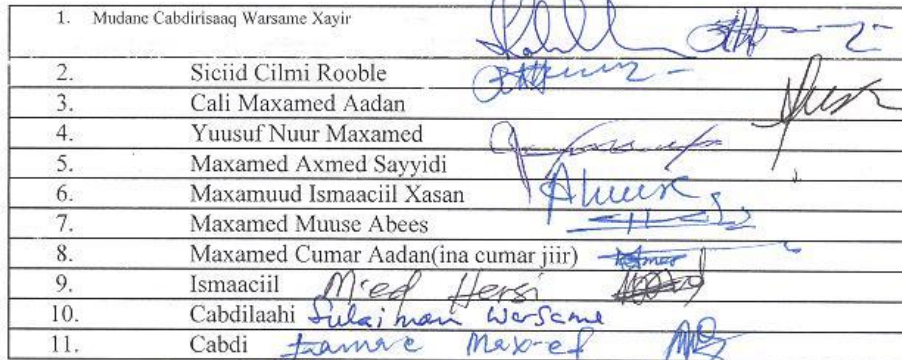 1. Mudane Cabdirisaaq Warsame Xayir
2. Siciid Cilmi Rooble
3. Cali Maxamed Aadan
4. Yuusuf Nuur Maxamed
5. Maxamed Axmed Sayyidi
6. Maxamuud Ismaaciil Xasan
7. Maxamed Muuse Abees
8. Maxamed Cumar Aadan(ina cumar jiir)
9. Ismaaciil M'ed Hersi
10. Cabdilaahi Sulaiman Warsame
11. Cabdi